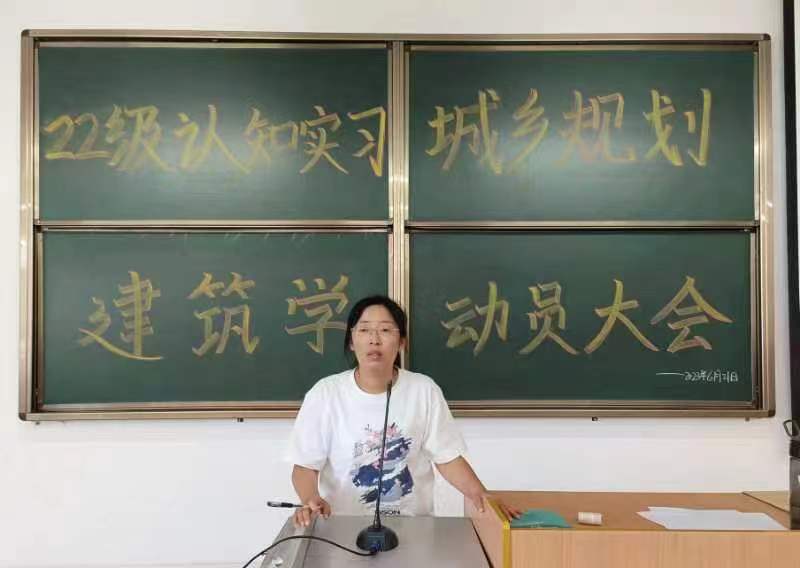 22级认知实习 城乡规划
建筑学 动员大会
——2023年6月21日